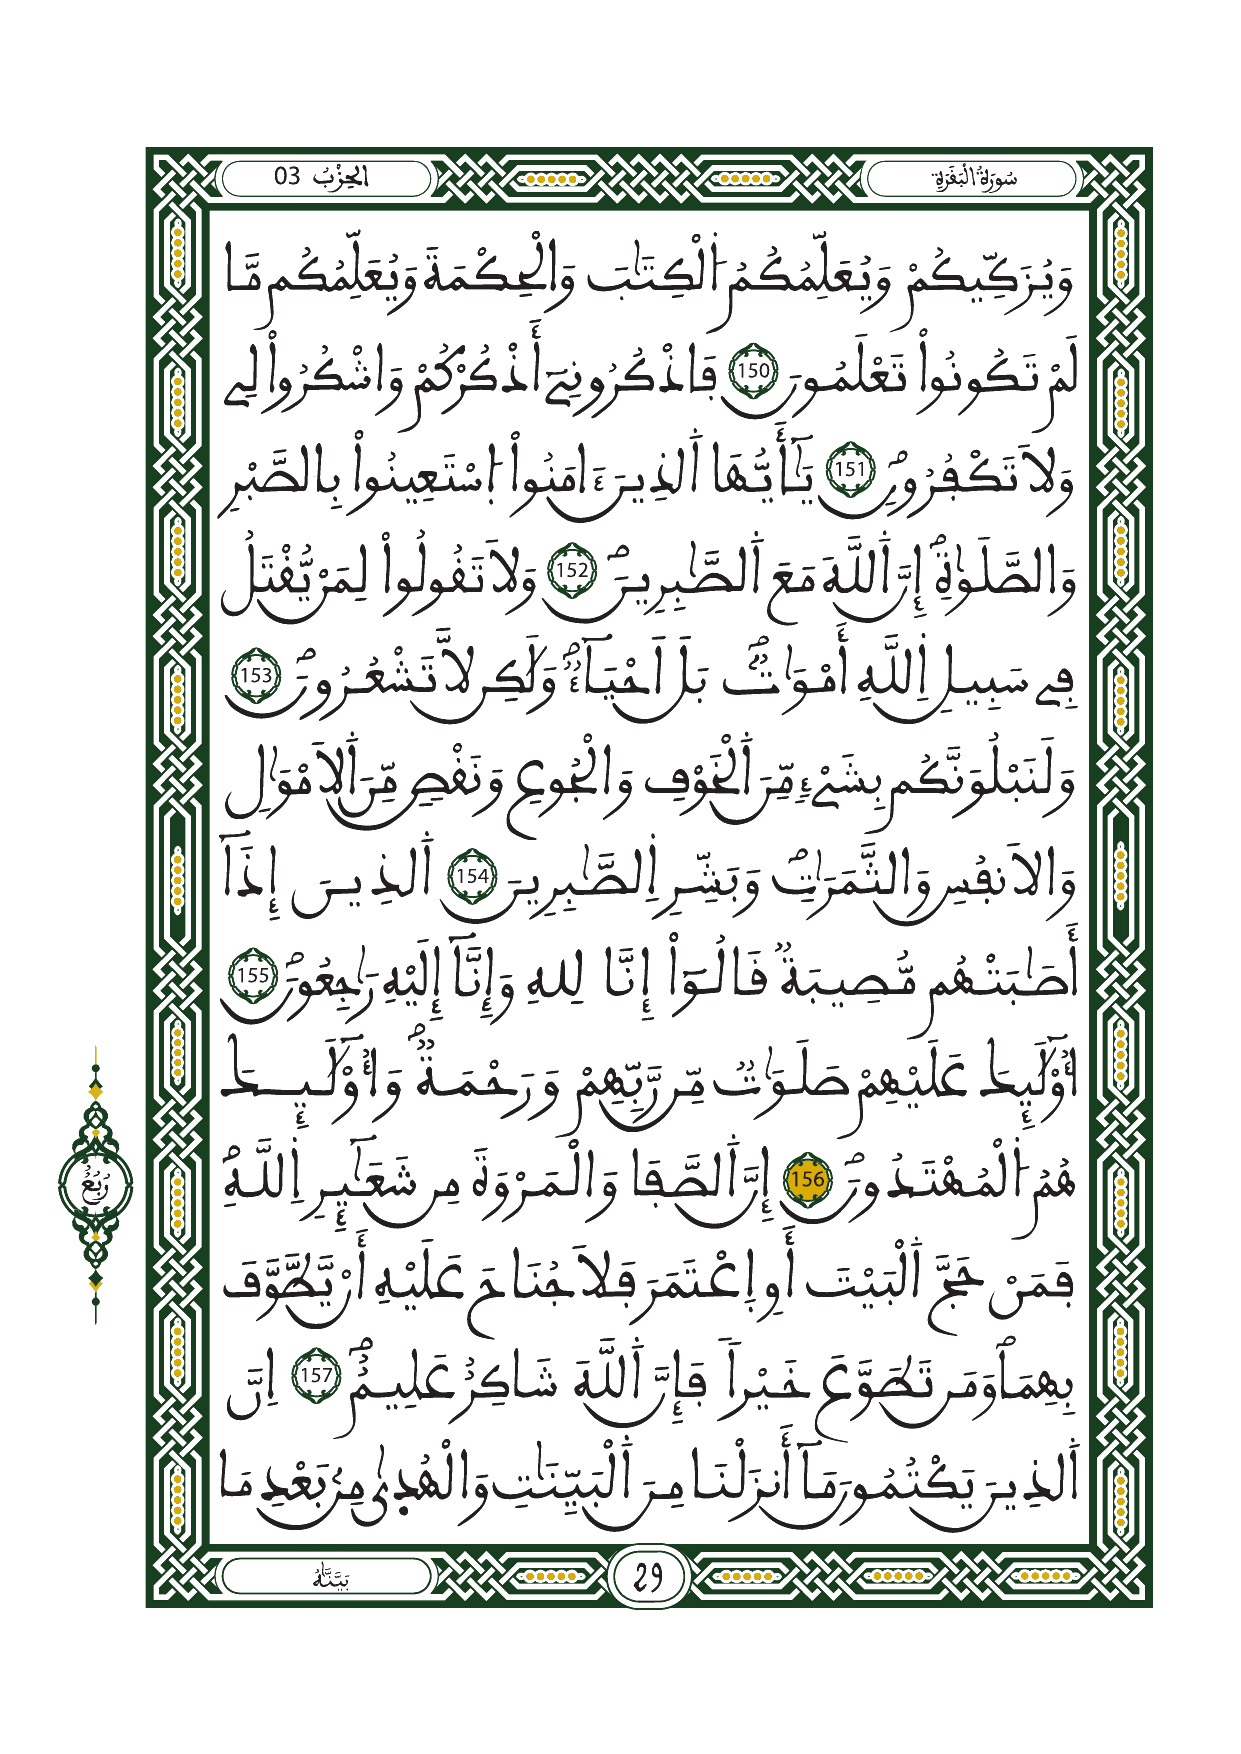 سُورَةُ الْبَقَرَةِ
الحِزْبُ 03
وَيُزَكِّيكُمْ وَيُعَلِّمُكُمُ اُ۬لْكِتَٰبَ وَالْحِكْمَةَ وَيُعَلِّمُكُم مَّا
لَمْ تَكُونُواْ تَعْلَمُونَ 150 فَاذْكُرُونِےٓ أَذْكُرْكُمْ وَاشْكُرُواْ لِے
وَلَا تَكْفُرُونِۖ 151 يَٰٓأَيُّهَا اَ۬لذِينَ ءَامَنُواْ اُ۪سْتَعِينُواْ بِالصَّبْرِ
وَالصَّلَوٰةِۖ إِنَّ اَ۬للَّهَ مَعَ اَ۬لصَّٰبِرِينَۖ 152 وَلَا تَقُولُواْ لِمَنْ يُّقْتَلُ
فِے سَبِيلِ اِ۬للَّهِ أَمْوَٰتُۢۖ بَلَ اَحْيَآءٞۖ وَلَٰكِن لَّا تَشْعُرُونَۖ 153
وَلَنَبْلُوَنَّكُم بِشَےْءٖ مِّنَ اَ۬لْخَوْفِ وَالْجُوعِ وَنَقْصٖ مِّنَ اَ۬لَامْوَٰلِ
وَالَانفُسِ وَالثَّمَرَٰتِۖ وَبَشِّرِ اِ۬لصَّٰبِرِينَ 154 اَ۬لذِينَ إِذَآ
أَصَٰبَتْهُم مُّصِيبَةٞ قَالُوٓاْ إِنَّا لِلهِ وَإِنَّآ إِلَيْهِ رَٰجِعُونَۖ 155
أُوْلَٰٓئِكَ عَلَيْهِمْ صَلَوَٰتٞ مِّن رَّبِّهِمْ وَرَحْمَةٞۖ وَأُوْلَٰٓئِكَ
هُمُ اُ۬لْمُهْتَدُونَۖ 156 إِنَّ اَ۬لصَّفَا وَالْمَرْوَةَ مِن شَعَٰٓئِرِ اِ۬للَّهِۖ
فَمَنْ حَجَّ اَ۬لْبَيْتَ أَوِ اِ۪عْتَمَرَ فَلَا جُنَاحَ عَلَيْهِ أَنْ يَّطَّوَّفَ
بِهِمَاۖ وَمَن تَطَوَّعَ خَيْراٗ فَإِنَّ اَ۬للَّهَ شَاكِرٌ عَلِيمٌۖ 157 اِنَّ
اَ۬لذِينَ يَكْتُمُونَ مَآ أَنزَلْنَا مِنَ اَ۬لْبَيِّنَٰتِ وَالْهُد۪يٰ مِنۢ بَعْدِ مَا
رُبُعُ
بَيَّنَّٰهُ
29